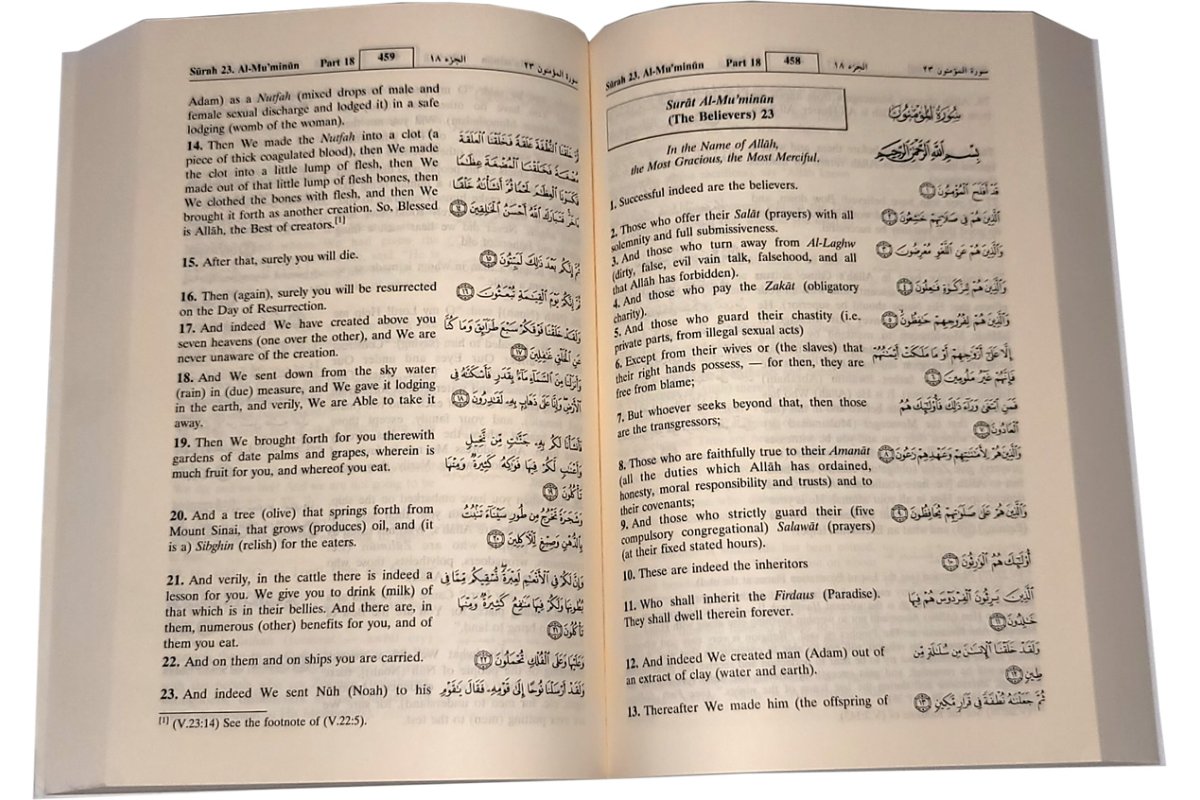 Sūrah 23. Al-Mu'minūn Part 18 458 الجزء ١٨ سورة المؤمنون ٢٣
Sūrāt Al-Mu'minūn
(The Believers) 23
In the Name of Allāh,
the Most Gracious, the Most Merciful.
1. Successful indeed are the believers.
2. Those who offer their Salāt (prayers) with all
solemnity and full submissiveness.
3. And those who turn away from Al-Laghw
(dirty, false, evil vain talk, falsehood, and all
that Allāh has forbidden).
4. And those who pay the Zakāt (obligatory
charity).
5. And those who guard their chastity (i.e.
private parts, from illegal sexual acts)
6. Except from their wives or (the slaves) that
their right hands possess, — for then, they are
free from blame;
7. But whoever seeks beyond that, then those
are the transgressors;
8. Those who are faithfully true to their Amanāt
(all the duties which Allāh has ordained,
honesty, moral responsibility and trusts) and to
their covenants;
9. And those who strictly guard their (five
compulsory congregational) Salawāt (prayers)
(at their fixed stated hours).
10. These are indeed the inheritors
11. Who shall inherit the Firdaus (Paradise).
They shall dwell therein forever.
12. And indeed We created man (Adam) out of
an extract of clay (water and earth).
13. Thereafter We made him (the offspring of
سُورَةُ المُؤْمِنُونَ
بِسْمِ اللَّهِ الرَّحْمَٰنِ الرَّحِيمِ
قَدْ أَفْلَحَ الْمُؤْمِنُونَ ١
الَّذِينَ هُمْ فِي صَلَاتِهِمْ خَاشِعُونَ ٢
وَالَّذِينَ هُمْ عَنِ اللَّغْوِ مُعْرِضُونَ ٣
وَالَّذِينَ هُمْ لِلزَّكَوٰةِ فَاعِلُونَ ٤
وَالَّذِينَ هُمْ لِفُرُوجِهِمْ حَافِظُونَ ٥
إِلَّا عَلَىٰ أَزْوَاجِهِمْ أَوْ مَا مَلَكَتْ أَيْمَانُهُمْ
فَإِنَّهُمْ غَيْرُ مَلُومِينَ ٦
فَمَنِ ابْتَغَىٰ وَرَاءَ ذَٰلِكَ فَأُولَٰئِكَ هُمُ
الْعَادُونَ ٧
وَالَّذِينَ هُمْ لِأَمَانَاتِهِمْ وَعَهْدِهِمْ رَاعُونَ ٨
وَالَّذِينَ هُمْ عَلَىٰ صَلَوَاتِهِمْ يُحَافِظُونَ ٩
أُولَٰئِكَ هُمُ الْوَارِثُونَ ١٠
الَّذِينَ يَرِثُونَ الْفِرْدَوْسَ هُمْ فِيهَا
خَالِدُونَ ١١
وَلَقَدْ خَلَقْنَا الْإِنسَانَ مِن سُلَالَةٍ مِّن
طِينٍ ١٢
ثُمَّ جَعَلْنَاهُ نُطْفَةً فِي قَرَارٍ مَّكِينٍ ١٣
Sūrah 23. Al-Mu'minūn Part 18 459 الجزء ١٨ سورة المؤمنون ٢٣
Adam) as a Nutfah (mixed drops of male and
female sexual discharge and lodged it) in a safe
lodging (womb of the woman).
14. Then We made the Nutfah into a clot (a
piece of thick coagulated blood), then We made
the clot into a little lump of flesh, then We
made out of that little lump of flesh bones, then
We clothed the bones with flesh, and then We
brought it forth as another creation. So, Blessed
is Allāh, the Best of creators.[1]
15. After that, surely you will die.
16. Then (again), surely you will be resurrected
on the Day of Resurrection.
17. And indeed We have created above you
seven heavens (one over the other), and We are
never unaware of the creation.
18. And We sent down from the sky water
(rain) in (due) measure, and We gave it lodging
in the earth, and verily, We are Able to take it
away.
19. Then We brought forth for you therewith
gardens of date palms and grapes, wherein is
much fruit for you, and whereof you eat.
20. And a tree (olive) that springs forth from
Mount Sinai, that grows (produces) oil, and (it
is a) Sibghin (relish) for the eaters.
21. And verily, in the cattle there is indeed a
lesson for you. We give you to drink (milk) of
that which is in their bellies. And there are, in
them, numerous (other) benefits for you, and of
them you eat.
22. And on them and on ships you are carried.
23. And indeed We sent Nūh (Noah) to his
ثُمَّ خَلَقْنَا النُّطْفَةَ عَلَقَةً فَخَلَقْنَا الْعَلَقَةَ
مُضْغَةً فَخَلَقْنَا الْمُضْغَةَ عِظَامًا
فَكَسَوْنَا الْعِظَامَ لَحْمًا ثُمَّ أَنشَأْنَاهُ خَلْقًا
آخَرَ فَتَبَارَكَ اللَّهُ أَحْسَنُ الْخَالِقِينَ ١٤
ثُمَّ إِنَّكُم بَعْدَ ذَٰلِكَ لَمَيِّتُونَ ١٥
ثُمَّ إِنَّكُمْ يَوْمَ الْقِيَامَةِ تُبْعَثُونَ ١٦
وَلَقَدْ خَلَقْنَا فَوْقَكُمْ سَبْعَ طَرَائِقَ وَمَا كُنَّا
عَنِ الْخَلْقِ غَافِلِينَ ١٧
وَأَنزَلْنَا مِنَ السَّمَاءِ مَاءً بِقَدَرٍ فَأَسْكَنَّاهُ فِي
الْأَرْضِ وَإِنَّا عَلَىٰ ذَهَابٍ بِهِ لَقَادِرُونَ ١٨
فَأَنشَأْنَا لَكُم بِهِ جَنَّاتٍ مِّن نَّخِيلٍ
وَأَعْنَابٍ لَّكُمْ فِيهَا فَوَاكِهُ كَثِيرَةٌ وَمِنْهَا
تَأْكُلُونَ ١٩
وَشَجَرَةً تَخْرُجُ مِن طُورِ سَيْنَاءَ تَنبُتُ
بِالدُّهْنِ وَصِبْغٍ لِّلْآكِلِينَ ٢٠
وَإِنَّ لَكُمْ فِي الْأَنْعَامِ لَعِبْرَةً نُّسْقِيكُم مِّمَّا فِي
بُطُونِهَا وَلَكُمْ فِيهَا مَنَافِعُ كَثِيرَةٌ وَمِنْهَا
تَأْكُلُونَ ٢١
وَعَلَيْهَا وَعَلَى الْفُلْكِ تُحْمَلُونَ ٢٢
وَلَقَدْ أَرْسَلْنَا نُوحًا إِلَىٰ قَوْمِهِ فَقَالَ يَا قَوْمِ
[1] (V.23:14) See the footnote of (V.22:5).